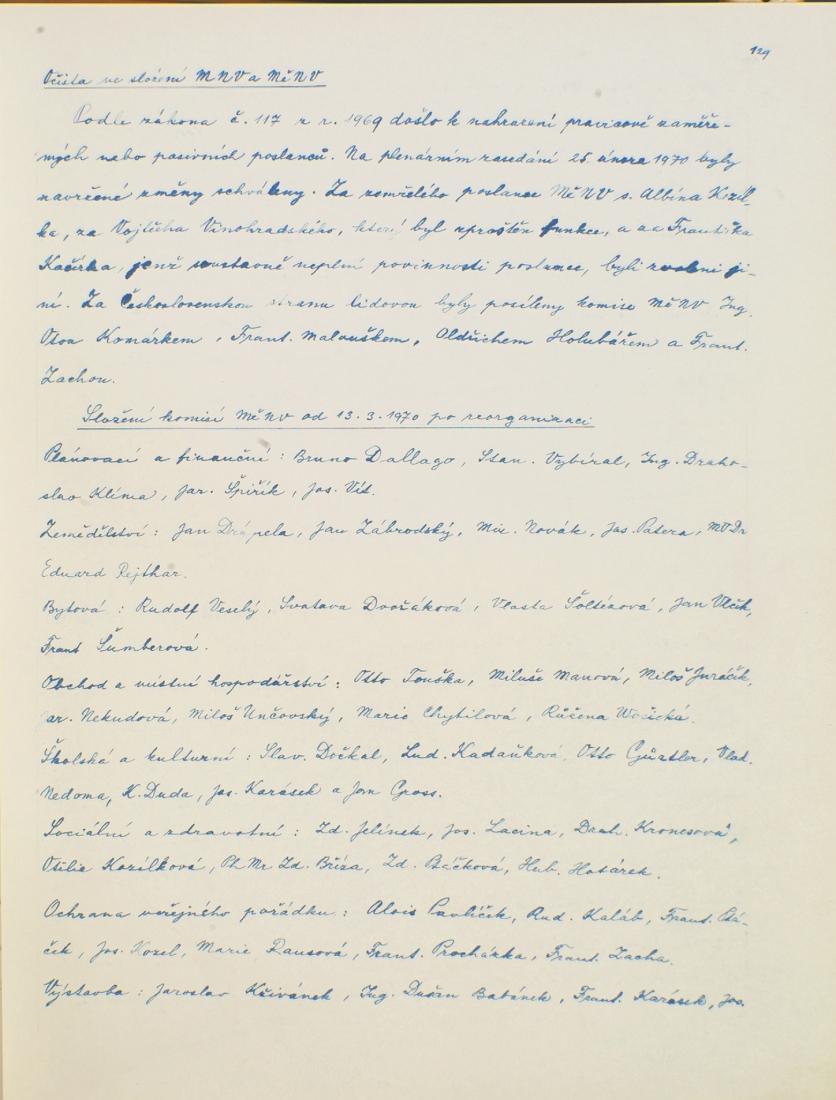 129
Očista ve složení MNV a MěNV
Podle zákona č. 117 z r. 1969 došlo k nahrazení pravicově zaměře-
ných nebo pasivních poslanců. Na plenárním zasedání 25. února 1970 byly
navržené změny schváleny. Za zemřelého poslance MěNV s. Albína Kozíl-
ka, za Vojtěcha Vinohradského, který byl zproštěn funkce, a za Františka
Kačírka, jenž soustavně neplní povinnosti poslance, byli zvoleni ji-
ní. Za Československou stranu lidovou byly posíleny komise MěNV Ing.
Otou Komárkem, Frant. Malouškem, Oldřichem Holubářem a Frant.
Zachou.
Složení komisí MěNV od 13. 3. 1970 po reorganizaci
Plánovací a finanční: Bruno Dallago, Stan. Vybíral, Ing. Draho-
slav Klíma, Jar. Špiřík, Jos. Vít.
Zemědělství: Jan Drápela, Jan Zábrodský, Mir. Novák, Jos. Patera, MVDr
Eduard Rejthar.
Bytová: Rudolf Veselý, Svatava Dvořáková, Vlasta Šolténová, Jan Vlček,
Frant Šumberová.
Obchod a místní hospodářství: Otto Touška, Miluše Manová, Miloš Juráčík,
Jar. Nekudová, Miloš Unčovský, Marie Chytilová, Růžena Wožická.
Školská a kulturní: Slav. Dočkal, Lud. Kadaňková, Otto Gürtler, Vlad.
Nedoma, K. Duda, Jos. Karásek a Jan Gross.
Sociální a zdravotní: Zd. Jelínek, Jos. Lacina, Drah. Kronesová,
Otilie Kozílková, PhMr Zd. Bříza, Zd. Ptáčková, Hub. Hotárek.
Ochrana veřejného pořádku: Alois Pavlíček, Rud. Kaláb, Frant. Ptá-
ček, Jos. Kozel, Marie Rausová, Frant. Procházka, Frant. Zacha.
Výstavba: Jaroslav Křivánek, Ing. Dušan Babánek, Frant. Karásek, Jos.